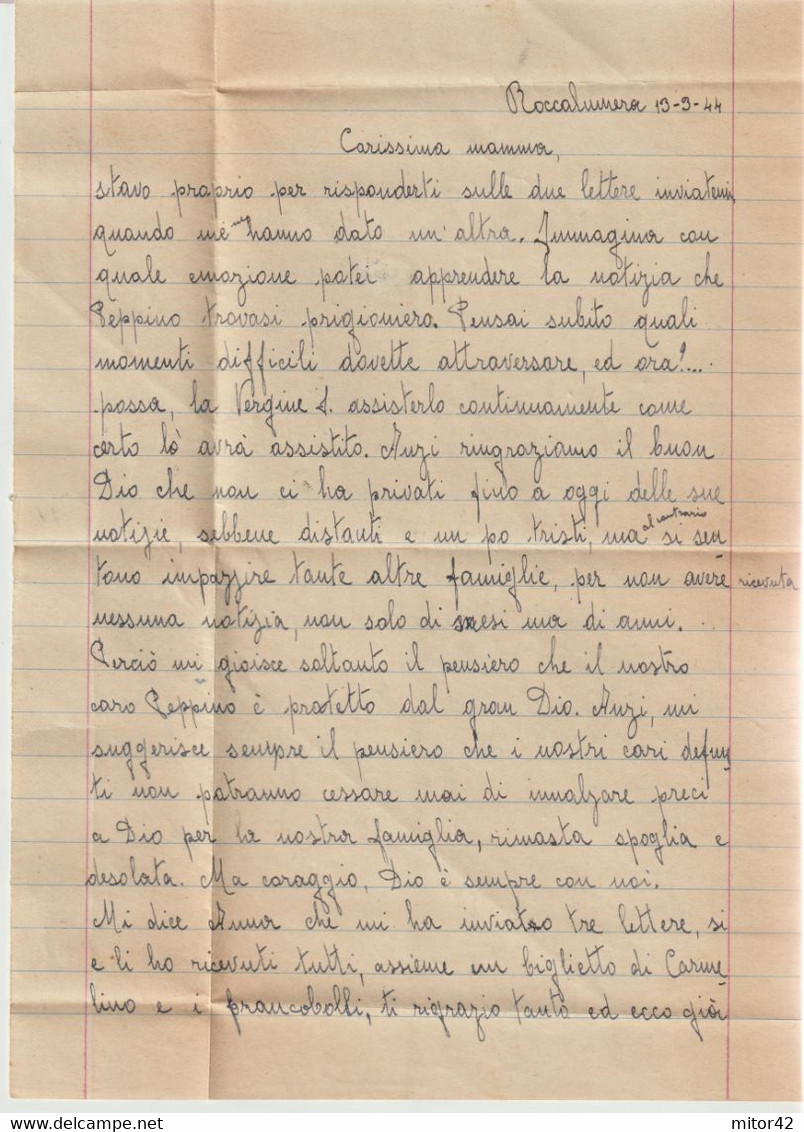 Roccalumera 13-3-44
Carissima mamma,
stavo proprio per risponderti sulle due lettere inviatemi,
quando me ne hanno dato un'altra. Immagina con
quale emozione potei apprendere la notizia che
Peppino trovasi prigioniero. Pensai subito quali
momenti difficili dovette attraversare, ed ora?...
possa, la Vergine S. assisterlo continuamente come
certo lò avrà assistito. Anzi ringraziamo il buon
Dio che non ci ha privati fino a oggi delle sue
notizie, sebbene distanti e un po tristi, ma al contrario si sen
tono impazzire tante altre famiglie, per non avere ricevuta
nessuna notizia, non solo di mesi ma di anni.
Perciò mi gioisce soltanto il pensiero che il nostro
caro Peppino è protetto dal gran Dio. Anzi, mi
suggerisce sempre il pensiero che i nostri cari defun
ti non potranno cessare mai di innalzare preci
a Dio per la nostra famiglia, rimasta spoglia e
desolata. Ma coraggio, Dio è sempre con noi.
Mi dice Anna che mi ha inviato tre lettere, si
e li ho ricevuti tutti, assieme un biglietto di Carme
lino e i francobolli, ti rigrazio tanto ed ecco già
mitor42